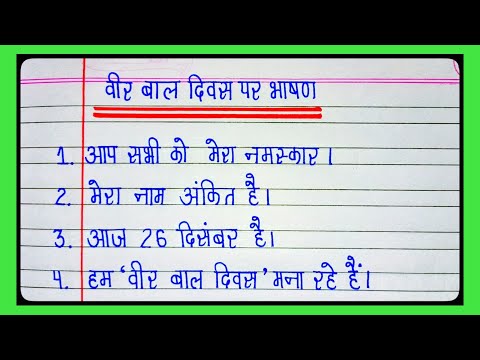 वीर बाल दिवस पर भाषण
1. आप सभी को मेरा नमस्कार।
2. मेरा नाम अंकित है।
3. आज 26 दिसंबर है।
4. हम ‘वीर बाल दिवस’ मना रहे हैं।